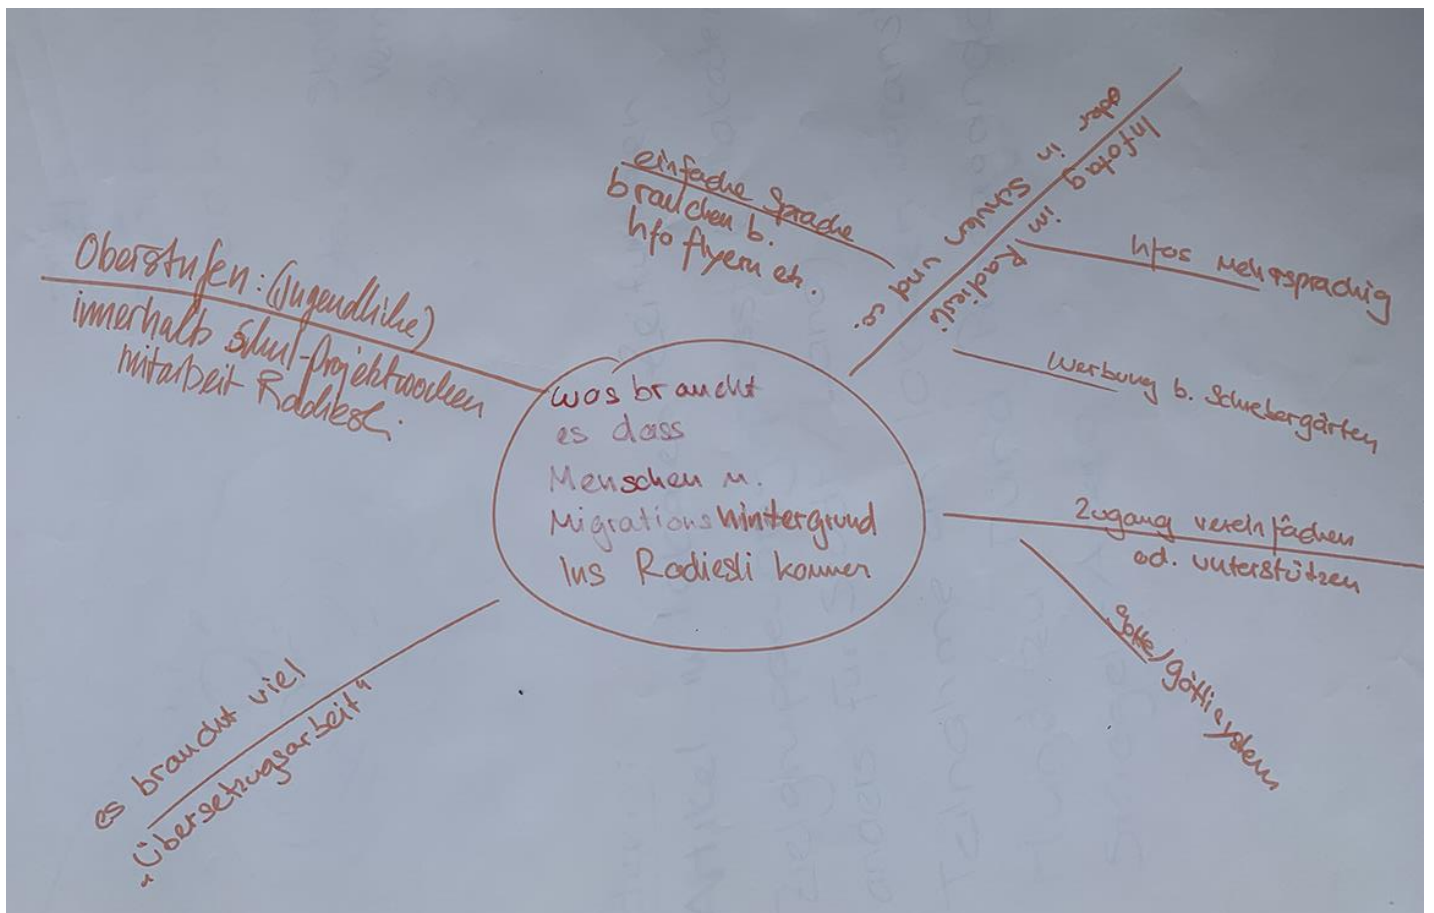 was braucht
es dass
Menschen m.
Migrationshintergrund
ins Radiesli kommen
Oberstufen: (Jugendliche)
innerhalb Schul-Projektwochen
mitarbeit Radiesli.
einfache Sprache
brauchen b.
Infoflyern etc.
oder in Schulen und co.
Infotag im Radiesli
Infos Mehrsprachig
Werbung b. Schrebergärten
Zugang vereinfachen
od. unterstützen
Gotte/Göttisystem
es braucht viel
"Übersetzugsarbeit"